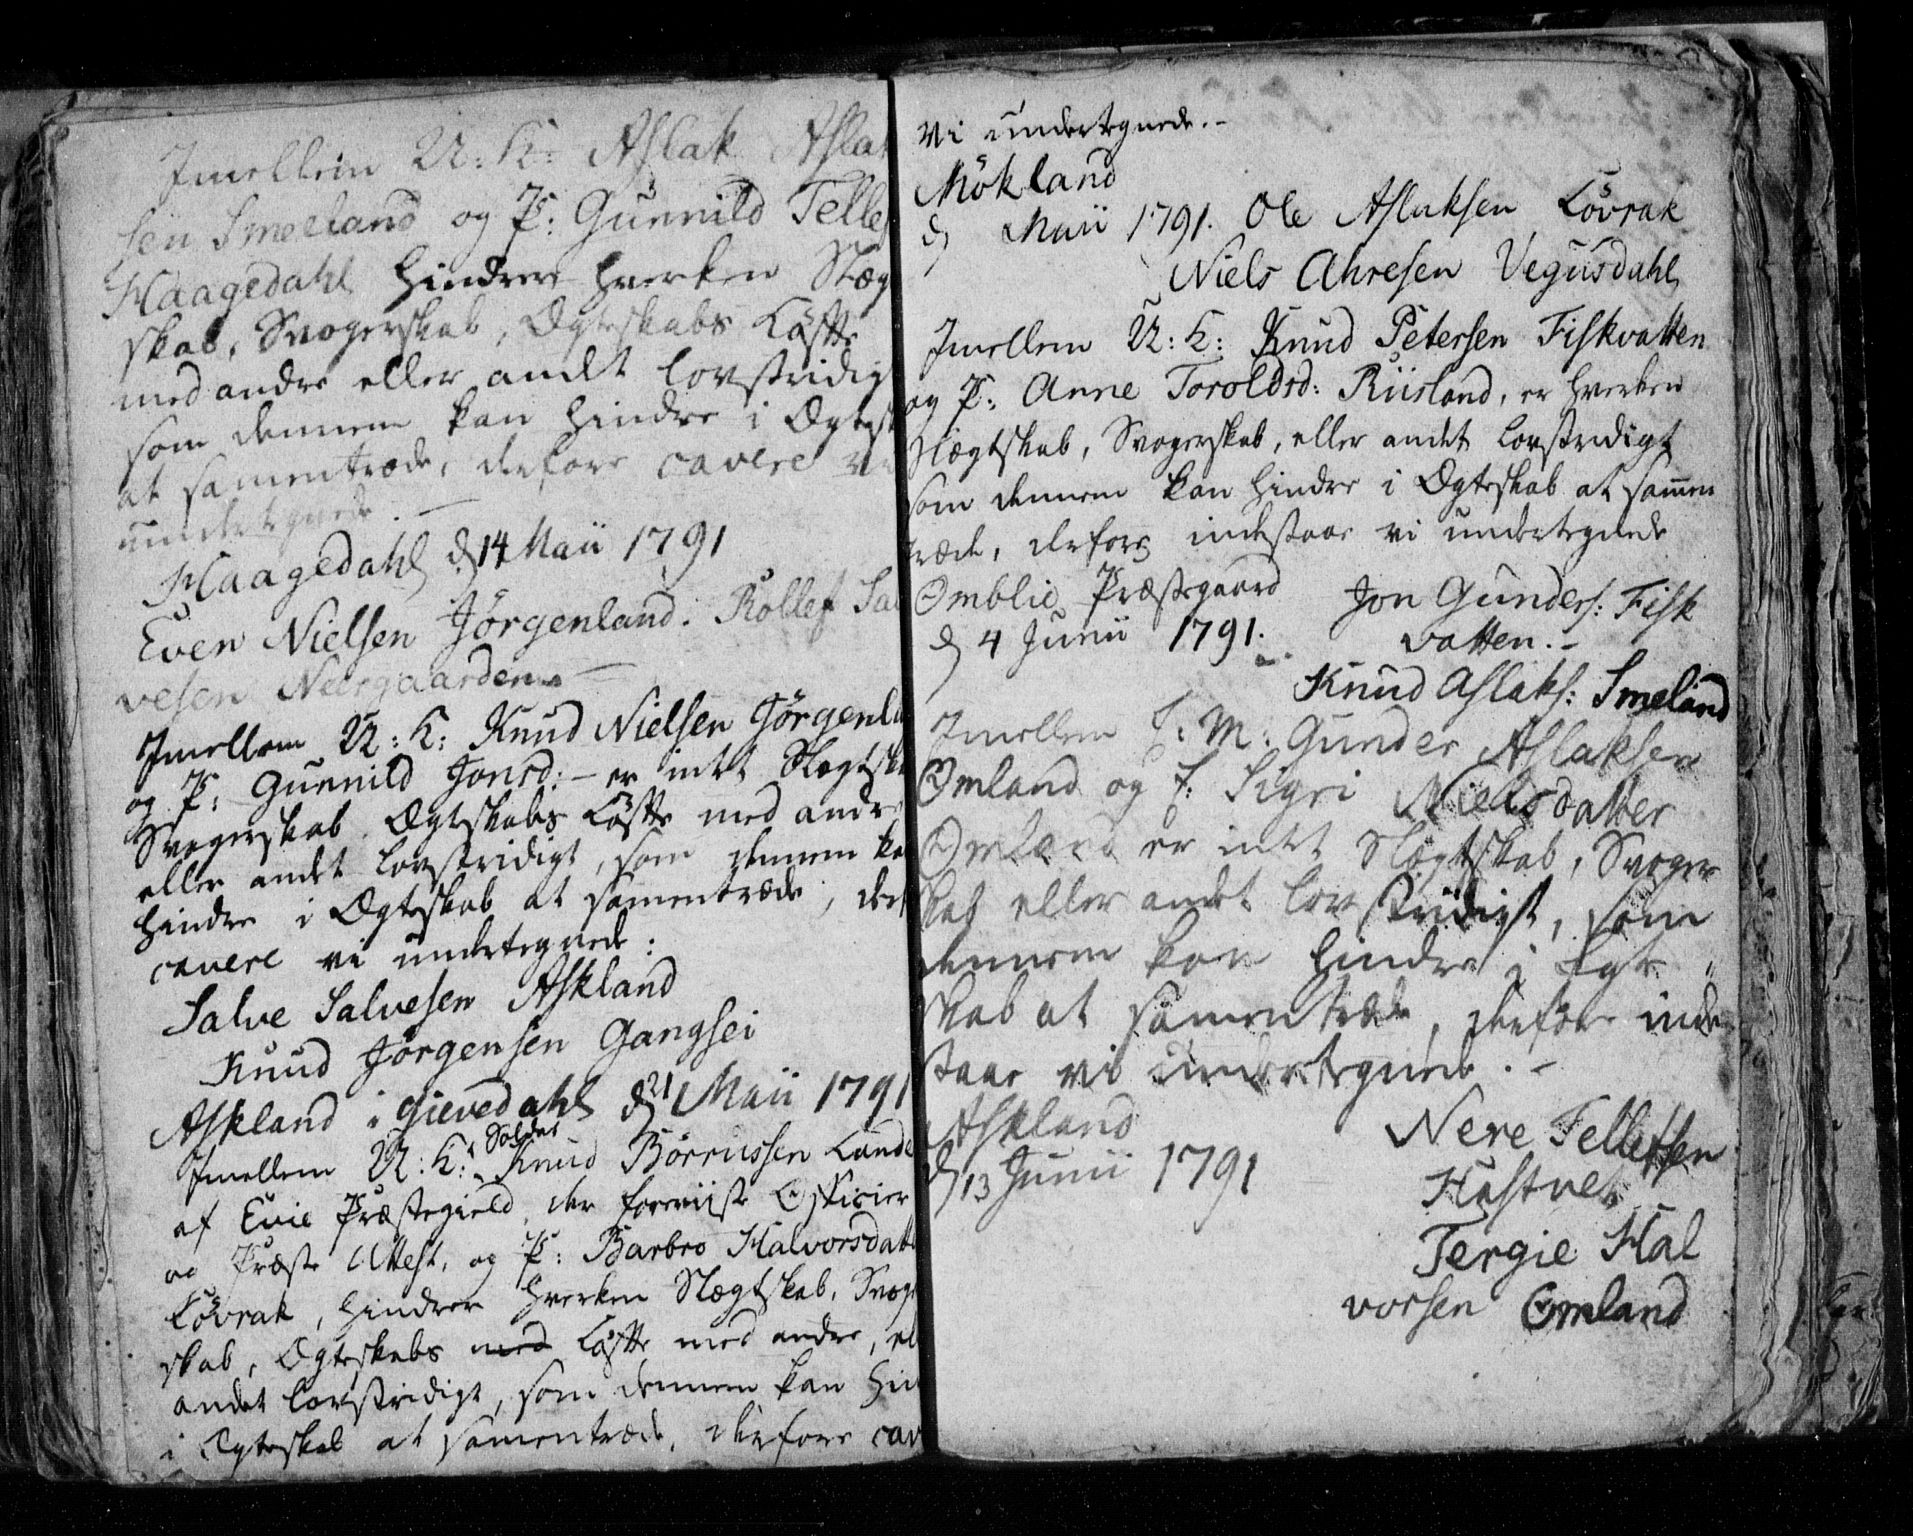 Imellem U: K: Aslak Aslak
sen Smeeland og P: Gunnild Telles
Haagedahl hindrer hverken Slægt
skab, Svogerskab, Ægteskabs Løfte
med andre eller andet lovstridigt
som dennem kan hindre i Ægtesk
at sammentræde, derfore cavere vi
undertegnede. —
Haagedahl d 14 Maii 1791
Even Nielsen Jørgenland. Rollef Sal
vesen Neergaarden. —
Imellem U: K: Knud Nielsen Jørgenla
og P: Gunnild Jonsd: – er intet Slægtska
Svogerskab, Ægteskabs Løfte med andre
eller andet lovstridigt, som dennem ka
hindre i Ægteskab at sammentræde, derf
cavere vi undertegnede:
Salve Salvesen Askland
Knud Jørgensen Gangsei
Askland i Gievedahl d 21 Maii 1791
Imellem U: K: Soldat Knud Børrussen Lande
af Evie Præstegield, der foreviiste Officier
og Præste Attest, og P: Barbro Halvorsdatt
Løvrak, hindrer hverken Slægtskab, Svoge
skab, Ægteskabs med Løfte med andre, el
andet lovstridigt, som dennem kan hin
i Ægteskab at sammentræde, derfore cav
vi undertegnede. –
Mökland
d Maii 1791. Ole Aslaksen Løvrak
Niels Ahresen Vegusdahl
Imellem U: K: Knud Petersen Fiskvatten
og P: Anne Toroldsd: Riisland, er hverken
Slægtskab, Svogerskab, eller andet lovstridigt
som dennem kan hindre i Ægteskab at sammen
træde, derfore indestaae vi undertegnede
Omblie Præstegaard
d 4 Junii 1791.
Jon Gunders: Fisk
vatten. –
Knud Aslaks: Smeland
Imellem E: M: Gunder Aslaksen
Omland og E: Sigri Nielsdatter
Omland er intet Slægtskab, Svoger
skab eller andet lovstridigt, som
dennem kan hindre i Ægte
skab at sammentræde, derfore inde
staae vi undertegnede. –
Askland
d 13 Junii 1791
Nere Tellefsen
Hastvet
Tergie Hal
vorsen Omland